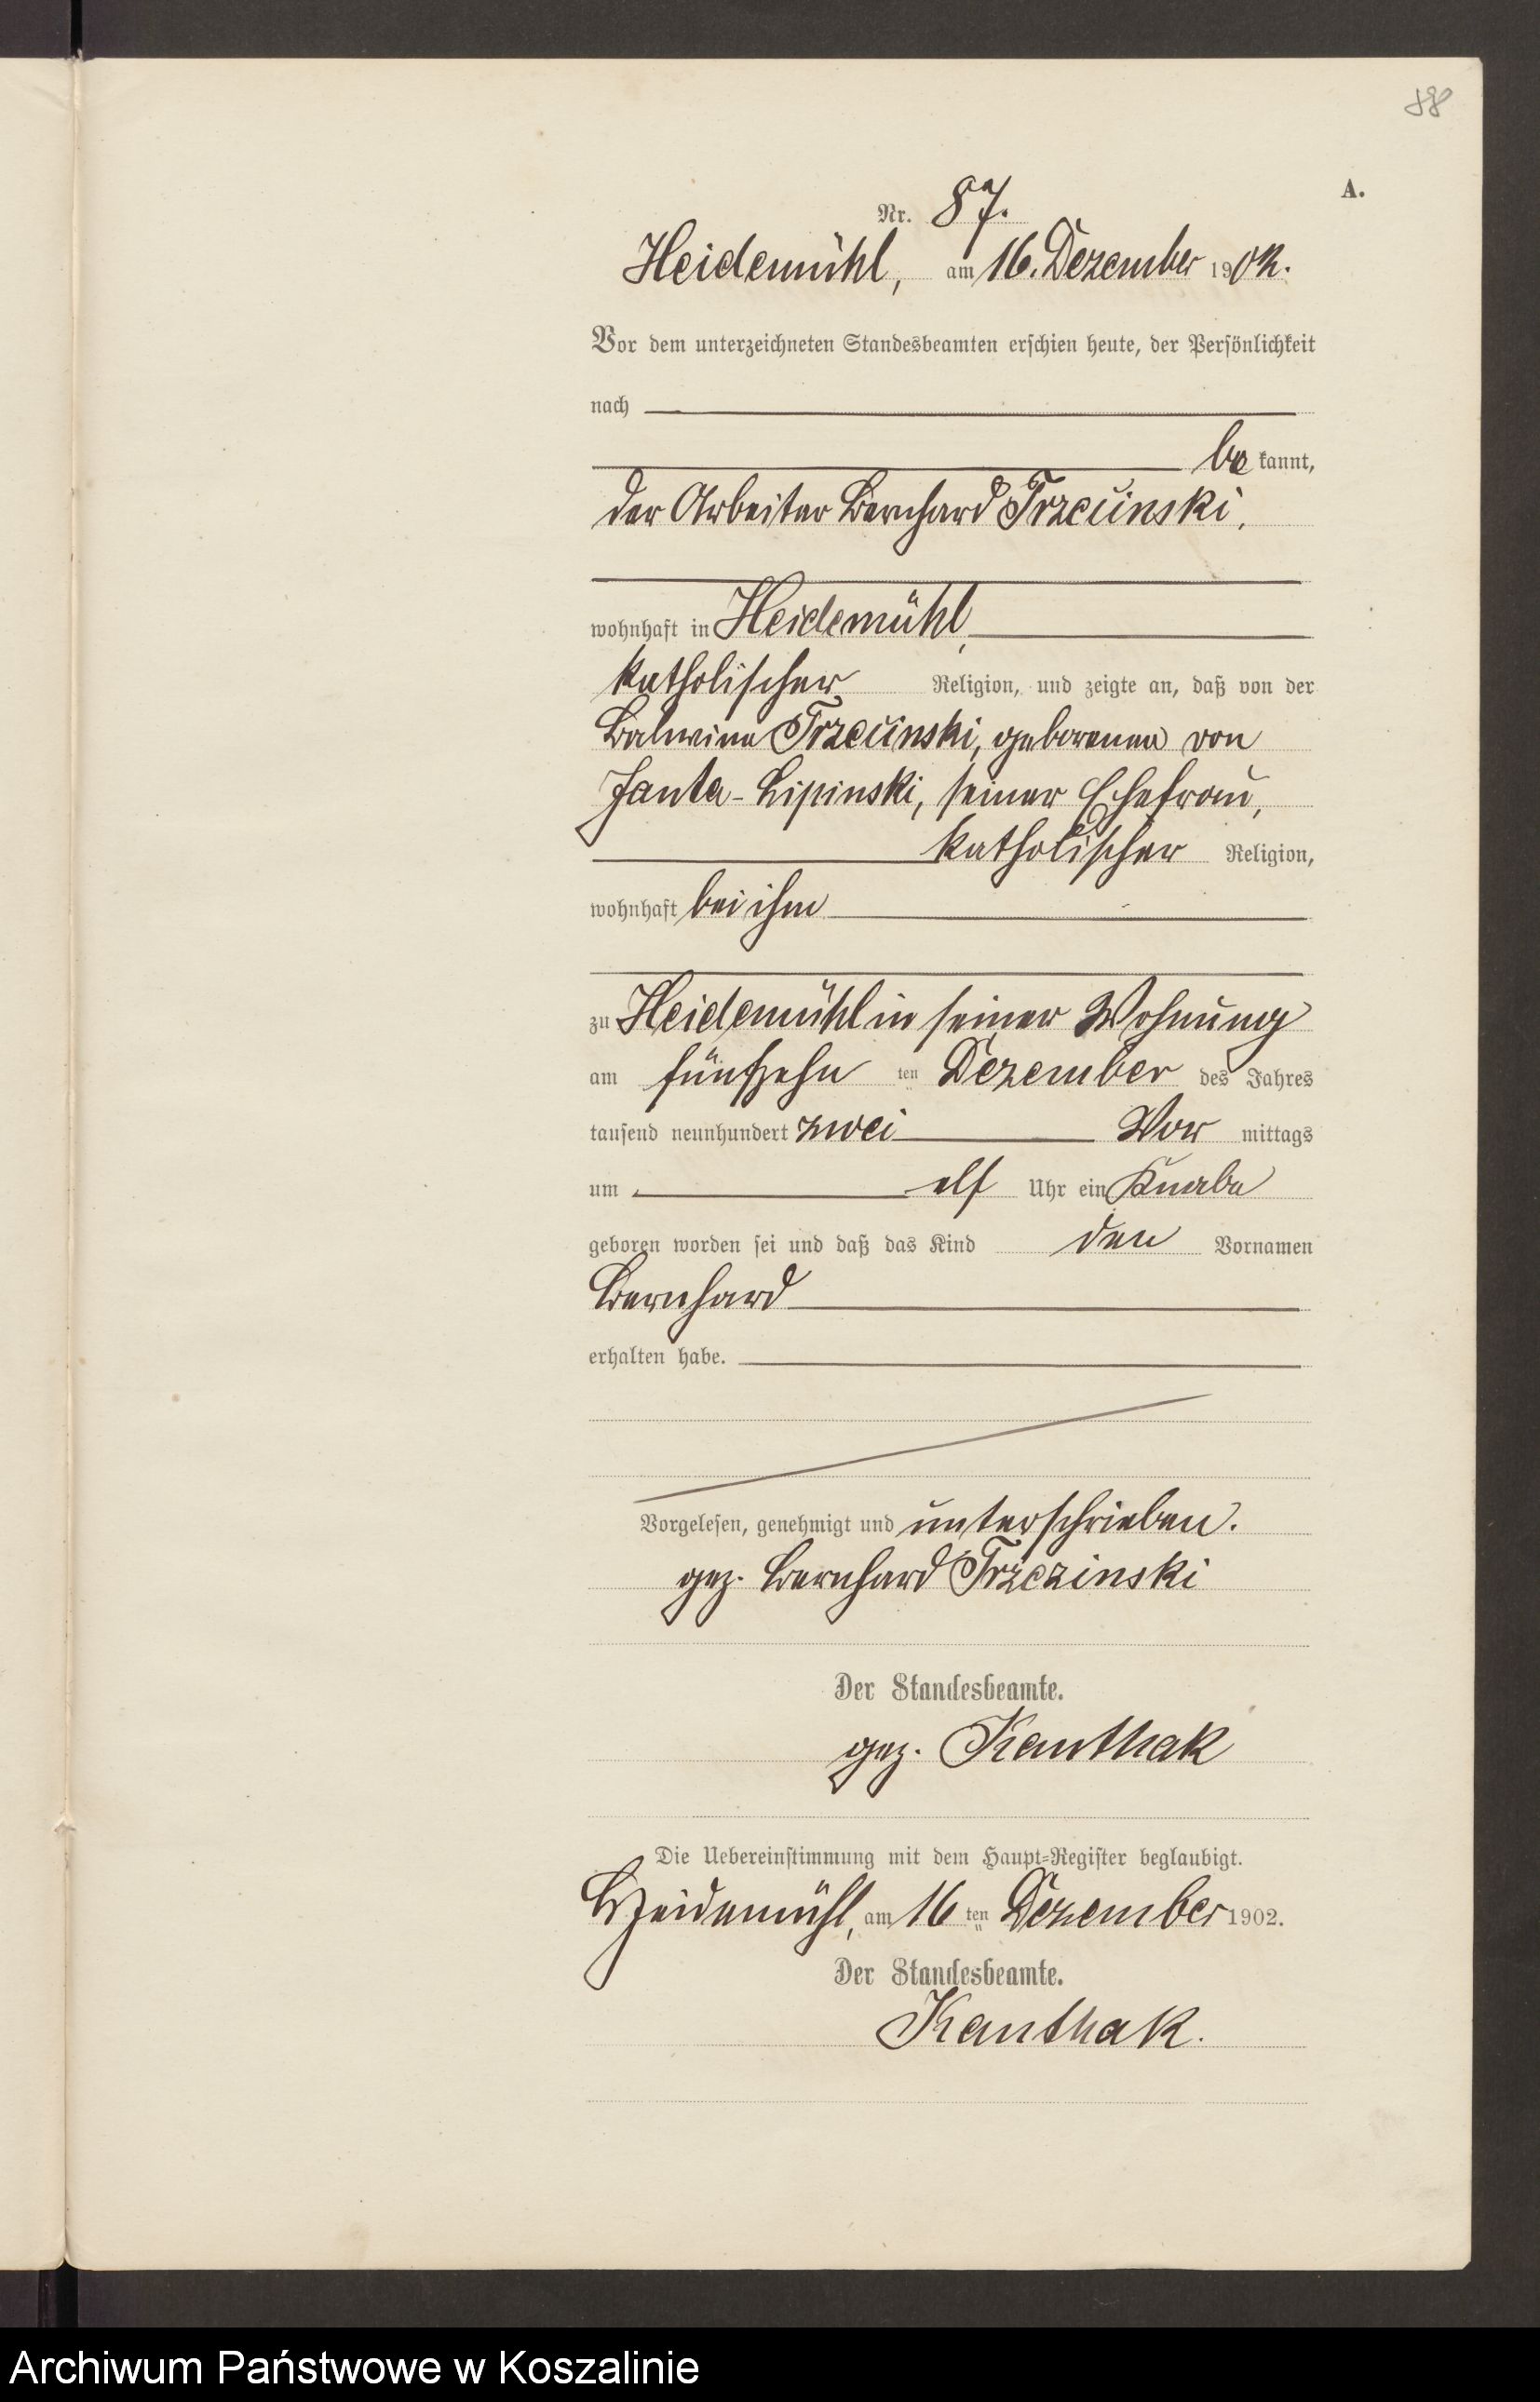 88
A.
Nr. 87.
Heidemühl, am 16. Dezember 1902.
Vor dem unterzeichneten Standesbeamten erschien heute, der Persönlichkeit
nach
be kannt,
der Arbeiter Bernhard Trzcinski,
wohnhaft in Heidemühl,
katholischer Religion, und zeigte an, daß von der
Balwina Trzcinski, geborenen von
Janta-Lipinski, seiner Ehefrau,
katholischer Religion,
wohnhaft bei ihm
zu Heidemühl in seiner Wohnung
am fünfzehn ten Dezember des Jahres
tausend neunhundert zwei Vor mittags
um elf Uhr ein Knabe
geboren worden sei und daß das Kind den Vornamen
Bernhard
erhalten habe.
Vorgelesen, genehmigt und unterschrieben.
gez. Bernhard Trzczinski
Der Standesbeamte.
gez. Kanthak
Die Uebereinstimmung mit dem Haupt-Register beglaubigt.
Heidemühl, am 16 ten Dezember 1902.
Der Standesbeamte.
Kanthak.
Archiwum Państwowe w Koszalinie